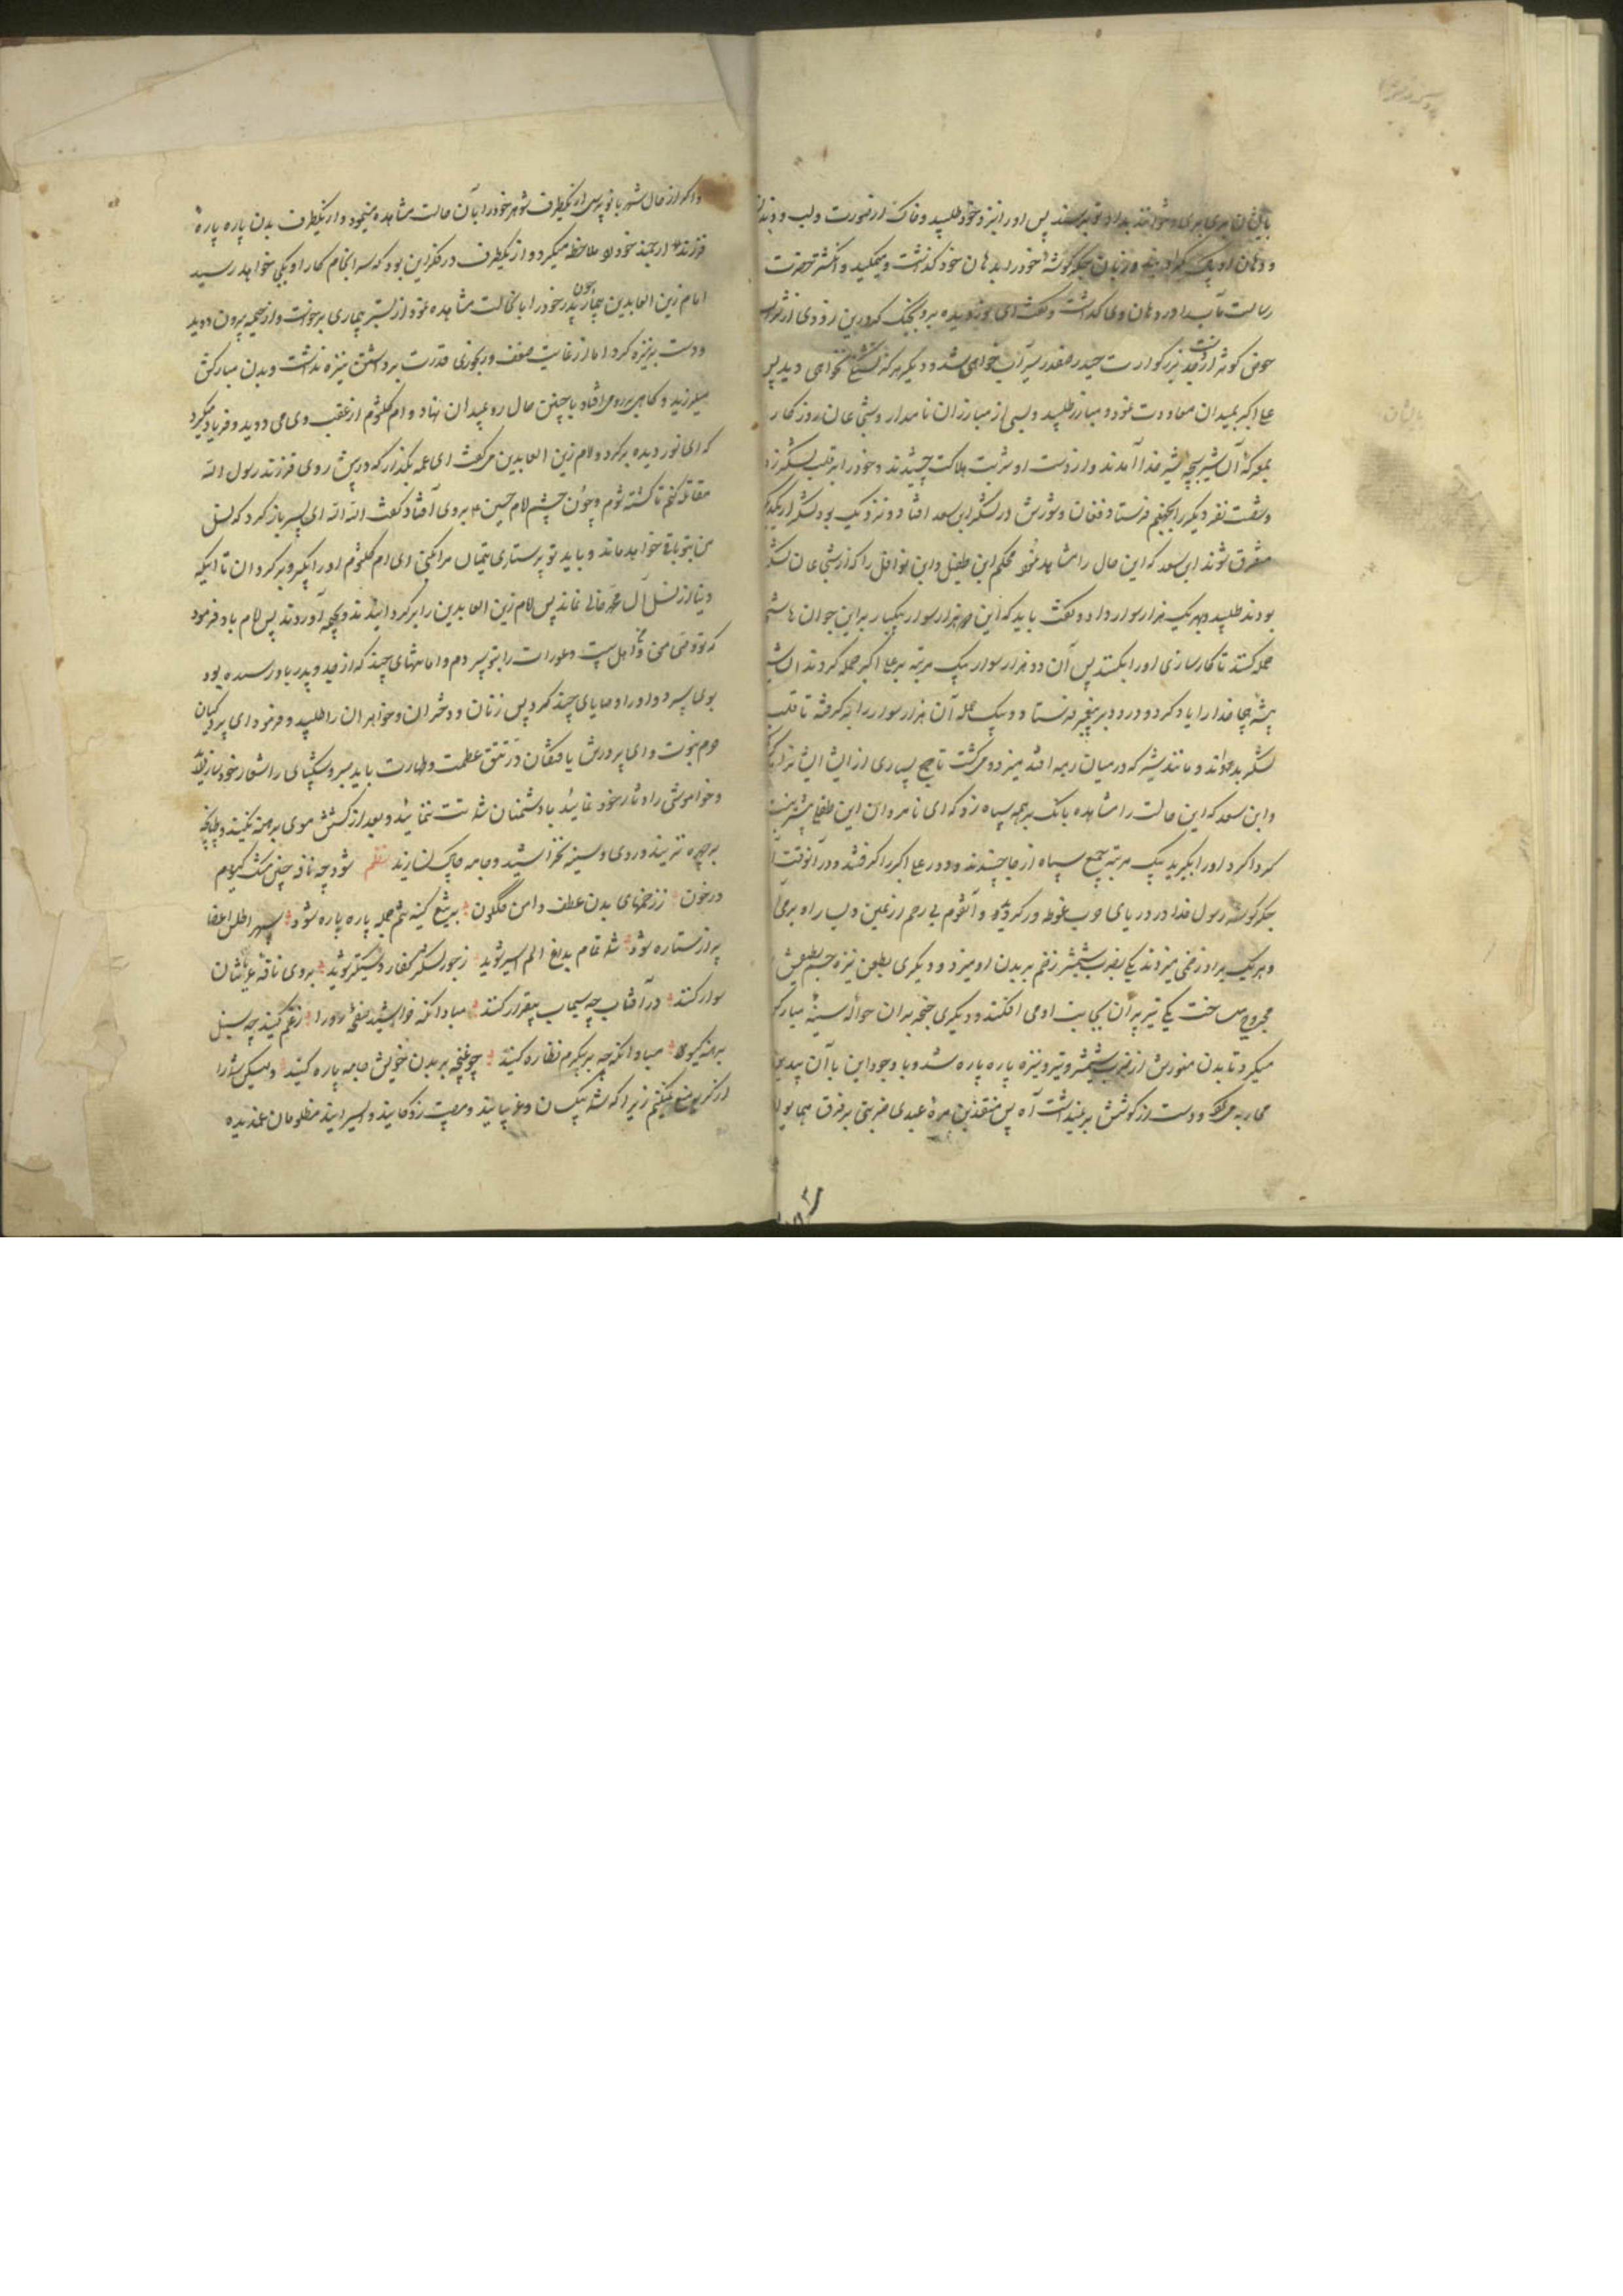 پس او را نیز نزد خود طلبید و خاک از صورت و لب و دندان
و دهان او پاک کرد و زبان جگرگوشه خود را بدهان خود گذاشت و میمکید و انگشتر حضرت
رسالت مآب را در دهان وی گذاشت و گفت ای نوردیده برو بجنگ که درین زودی از شراب
حوض کوثر از دست جد بزرگوارت حیدر صفدر سیراب خواهی شد و دیگر هرگز تشنگی نخواهی دید پس
علی اکبر بمیدان معاودت نمود و مبارز طلبید و بسی از مبارزان نامدار و شجاعان روزگار
بمعرکه آن شیر بچه شیر خدا آمدند و از دست او شربت هلاکت چشیدند و خود را بر قلب لشکر زد
و هفت نفر دیگر را بجهنم فرستاد و فغان و شورش در لشکر ابن سعد افتاد و نزدیک بود لشکر از یکدیگر
متفرق شوند ابن سعد که این حال را مشاهده نمود محکم ابن طفیل و ابن نوافل را که از شجاعان لشکر
بودند طلبید و بهر یک هزار سوار داد و گفت باید که این دو هزار سوار بیکبار بر این جوان هاشمی
حمله کنند تا کارسازی او را بکنند پس آن دو هزار سوار بیک مرتبه بر علی اکبر حمله کردند آن شیر
بیشه هیجا خدا را یاد کرد و درود بر پیغمبر فرستاد و بیک حمله آن هزار سوار را برگرفته تا قلب
لشکر بدواند و مانند شیر که در میان رمه افتد میزد و میکشت تا جمع بسیاری از ایشان
و ابن سعد که این حالت را مشاهده بانگ بر همه سپاه زد که ای نامردان این طفلی بیش نیست
گرداگرد او را بگیرید بیک مرتبه جمیع سپاه از جا جنبیدند و دور علی اکبر را گرفتند و در آنوقت
جگرگوشه رسول خدا در دریای حرب غوطه ور گردید و آنقوم بی رحم از یمین و یسار
و هر یک بر او زخمی میزدند یکی بضرب شمشیر زخم بر بدن او میزد و دیگری بطعن نیزه جسم لطیفش
مجروح میساخت یکی تیر پران بجانب او می افکند و دیگری خنجر بران حواله سینه مبارکش
میکرد تا بدن منورش از ضرب شمشیر و تیر و نیزه پاره پاره شد و با وجود این با آن
محاربه میکرد و دست از کوشش بر نمیداشت آه پس منقذ بن مره عبدی ضربتی بر فرق همایون
و اگر از حال شهربانو پرسی از یکطرف شوهر خود را بآن حالت مشاهده مینمود و از یکطرف بدن پاره پاره
فرزند ارجمند خود را ملاحظه میکرد و از یکطرف در فکر این بود که سرانجام کار او بکجا خواهد رسید
امام زین العابدین بیمار چون پدر خود را بانحالت مشاهده نمود از بستر بیماری برخواست و از خیمه بیرون دوید
و دست بر نیزه کرد اما از غایت ضعف و رنجوری قدرت برداشتن نیزه نداشت و بدن مبارکش
میلرزید و گاهی بر رو می افتاد با چنین حال رو بمیدان نهاد و ام کلثوم از عقب وی می دوید و فریاد میکرد
که ای نور دیده برگرد و امام زین العابدین میگفت ای عمه بگذار که در پیش روی فرزند رسول الله
مقاتله کنم تا کشته شوم و چون چشم امام حسین بروی افتاد گفت الله الله ای پسر باز گرد که نسل
من بتو باقی خواهد ماند و باید تو پرستاری یتیمان مرا بکنی ای ام کلثوم او را بگیر و برگردان تا اینکه
دنیا از نسل آل محمد خالی نماند پس امام زین العابدین را برگردانیدند و بخیمه آوردند پس امام باو فرمود
که تو وصی منی و اهل بیت و عورات را بتو سپردم و امانتهای چند که از جد و پدر باو رسیده بود
بوی سپرد و او را وصایای چند کرد پس زنان و دختران و خواهران را طلبید و فرمود ای پردگیان
حرم نبوت و ای پرورش یافتگان در تتق عظمت و طهارت باید صبر و شکیبای را شعار خود سازید
و خواموشی را دثار خود نمائید با دشمنان شماتت ننمائید و بعد از کشتنم موی برهنه نکنید و طپانچه
بر چهره نزنید و روی و سینه نخراشید و جامه چاک نسازید نظم شود چه نافه چین مشک کیوم
در خون ز زخمهای بدن عطف دامن گلگون به تیغ کینه تنم جمله پاره پاره شود سپهر اطلس اعضا
پر از ستاره شود شما تمام به تیغ الم اسیر شوید ز جور لشکر کفار دستگیر شوید بروی ناقه عریانتان
سوار کنند در آفتاب چه سیماب بیقرار کنند مبادا آنکه خراشید صفحه رو را ز غم کنید چه سنبل
برهنه گیسو مبادا آنکه چه بر پیکرم نظاره کنید چو غنچه بر بدن خویش جامه پاره کنید و لیکن شما را
از گریه منع نمیکنم زیرا که شما بیکسان و غریبانید و مصیبت زدگانید و اسیرانید مظلومان غمدیده